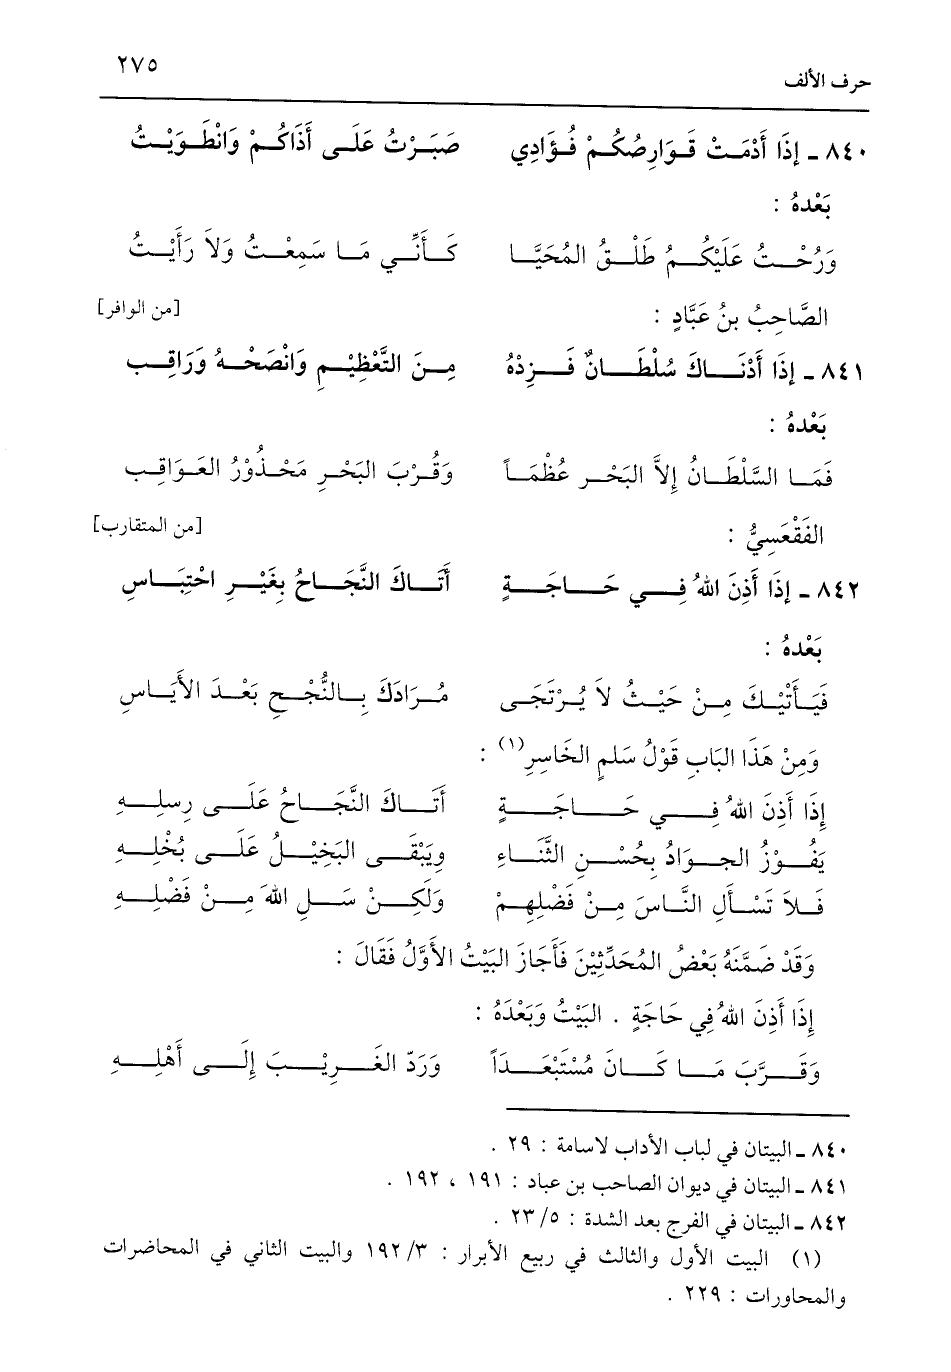 حرف الألف ٢٧٥
٨٤٠ ـ إذَا أَدْمَتْ قَوَارِصُكُمْ فُؤَادِي صَبَرْتُ عَلَى أَذَاكُمْ وَانْطَوَيْتُ
بَعْدهُ :
وَرُحْتُ عَلَيْكُمُ طَلْقَ المُحَيَّا كَأَنِّي مَا سَمِعْتُ وَلاَ رَأَيْتُ
الصَّاحِبُ بنُ عَبَّادٍ : [من الوافر]
٨٤١ ـ إذَا أَدْنَاكَ سُلْطَانٌ فَزِدْهُ مِنَ التَّعْظِيْمِ وَانْصَحْهُ وَرَاقِب
بَعْدهُ :
فَمَا السَّلْطَانُ إلاَّ البَحْر عُظْمَاً وَقُرْبَ البَحْرِ مَحْذُوْرُ العَوَاقِب
الفَقْعَسِيُّ : [من المتقارب]
٨٤٢ ـ إذَا أَذِنَ اللهُ فِي حَاجَةٍ أَتَاكَ النَّجَاحُ بِغَيْرِ احْتِبَاسِ
بَعْدهُ :
فَيَأتْيْكَ مِنْ حَيْثُ لاَ يُرْتَجَى مُرَادَكَ بِالنُّجْحِ بَعْدَ الأَيَاسِ
وَمِنْ هَذَا البَابِ قَوْلُ سَلمٍ الخَاسِرِ(١) :
إذَا أَذِنَ اللهُ فِي حَاجَةٍ أَتَاكَ النَّجَاحُ عَلَى رِسلِهِ
يَفُوْزُ الجوَادُ بِحُسْنِ الثَّنَاءِ وِيَبْقَى البَخِيْلُ عَلَى بُخْلِهِ
فَلاَ تَسْأَلِ النَّاسَ مِنْ فَضْلِهِمْ وَلَكِنْ سَلِ اللهَ مِنْ فَضْلِهِ
وَقَدْ ضَمَّنَهُ بَعْضُ المُحَدِّثِيْنَ فَأَجَازَ البَيْتُ الأَوَّلُ فَقَالَ :
إذَا أَذِنَ اللهُ فِي حَاجَةٍ . البَيْتُ وَبَعْدَهُ :
وَقَرَّبَ مَا كَانَ مُسْتَبْعَدَاً وَرَدّ الغَرِيْبَ إلَى أَهْلِهِ
٨٤٠ ـ البيتان في لباب الأداب لاسامة : ٢٩ .
٨٤١ ـ البيتان في ديوان الصاحب بن عباد : ١٩١ ، ١٩٢ .
٨٤٢ ـ البيتان في الفرج بعد الشدة : ٢٣/٥ .
(١) البيت الأول والثالث في ربيع الأبرار : ١٩٢/٣ والبيت الثاني في المحاضرات
والمحاورات : ٢٢٩ .